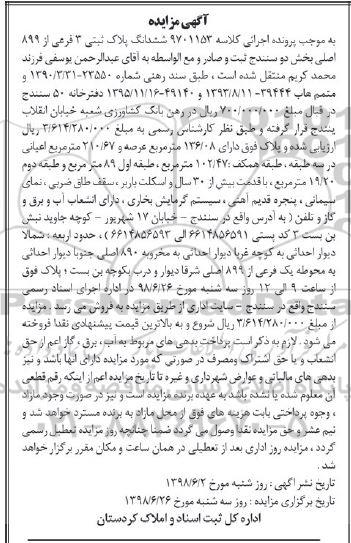 آگهی مزایده
به موجب پرونده اجرائی کلاسه ۹۷۰۱۱۵۳ ششدانگ پلاک ثبتی ۳ فرعی از ۸۹۹
اصلی بخش دو سنندج ثبت و صادر و مع الواسطه به آقای عبدالرحمن یوسفی فرزند
محمد کریم منتقل شده است ، طبق سند رهنی شماره ۲۳۵۵۰-۱۳۹۰/۳/۳۱ و
متمم های ۳۹۴۴۴-۱۳۹۳/۸/۱۱ و ۴۹۱۴۰-۱۳۹۵/۱۱/۱۶ دفترخانه ۵۰ سنندج
در قبال مبلغ ۷۰۰/۰۰۰/۰۰۰ ریال در رهن بانک کشاورزی شعبه خیابان انقلاب
پنندج قرار گرفته و طبق نظر کارشناس رسمی به مبلغ ۳/۶۱۴/۲۸۰/۰۰۰ ریال
ارزیابی شده و پلاک فوق دارای ۱۳۶/۰۸ مترمربع عرصه و ۲۱۰/۶۷ مترمربع اعیانی
در سه طبقه، طبقه همکف :۱۰۲/۴۷ مترمربع ، طبقه اول ۸۹ متر مربع و طبقه دوم
۱۹/۲۰ مترمربع ، با قدمت بیش از ۳۰ سال و اسکلت باربر ، سقف طاق ضربی ، نمای
سیمانی ، پنجره قدیم آهنی ، سیستم گرمایش بخاری ، دارای انشعاب آب و برق و
گاز و تلفن ( به آدرس واقع در سنندج - خیابان ۱۷ شهریور - کوچه جاوید نبش
بن بست ۳ کد پستی ۶۶۱۴۸۵۶۵۹۱ الی ۶۶۱۴۸۵۶۵۹۳ ) ، حدود اربعه : شمالا
دیوار احداثی به کوچه غربا دیوار احداثی به مخروبه ۸۹۰ اصلی جنوبا دیوار احداثی
به محوطه یک فرعی از ۸۹۹ اصلی شرقا دیوار و درب بکوچه بن بست ؛ پلاک فوق
از ساعت ۹ الی ۱۲ روز سه شنبه مورخ ۹۸/۶/۲۶ در اداره اجرای اسناد رسمی
سنندج واقع در سنندج - سایت اداری از طریق مزایده به فروش می رسد . مزایده
از مبلغ ۳/۶۱۴/۲۸۰/۰۰۰ ریال شروع و به بالاترین قیمت پیشنهادی نقدا فروخته
می شود . لازم به ذکر است پرداخت بدهی های مربوط به آب ، برق ، گاز اعم از حق
انشعاب و یا حق اشتراک ومصرف در صورتی که مورد مزایده دارای آنها باشد و نیز
بدهی های مالیاتی و عوارض شهرداری و غیره تا تاریخ مزایده اعم از اینکه رقم قطعی
آن معلوم شده یا نشده باشد به عهده برنده مزایده است و نیز در صورت وجود مازاد
، وجوه پرداختی بابت هزینه های فوق از محل مازاد به برنده مسترد خواهد شد و
نیم عشر و حق مزایده نقدا وصول می گردد ضمنا چنانچه روز مزایده تعطیل رسمی
گردد ، مزایده روز اداری بعد از تعطیلی در همان ساعت و مکان مقرر برگزار خواهد
شد .
تاریخ نشر آگهی : روز شنبه مورخ ۱۳۹۸/۶/۲
تاریخ برگزاری مزایده : روز سه شنبه مورخ ۱۳۹۸/۶/۲۶
اداره کل ثبت اسناد و املاک کردستان